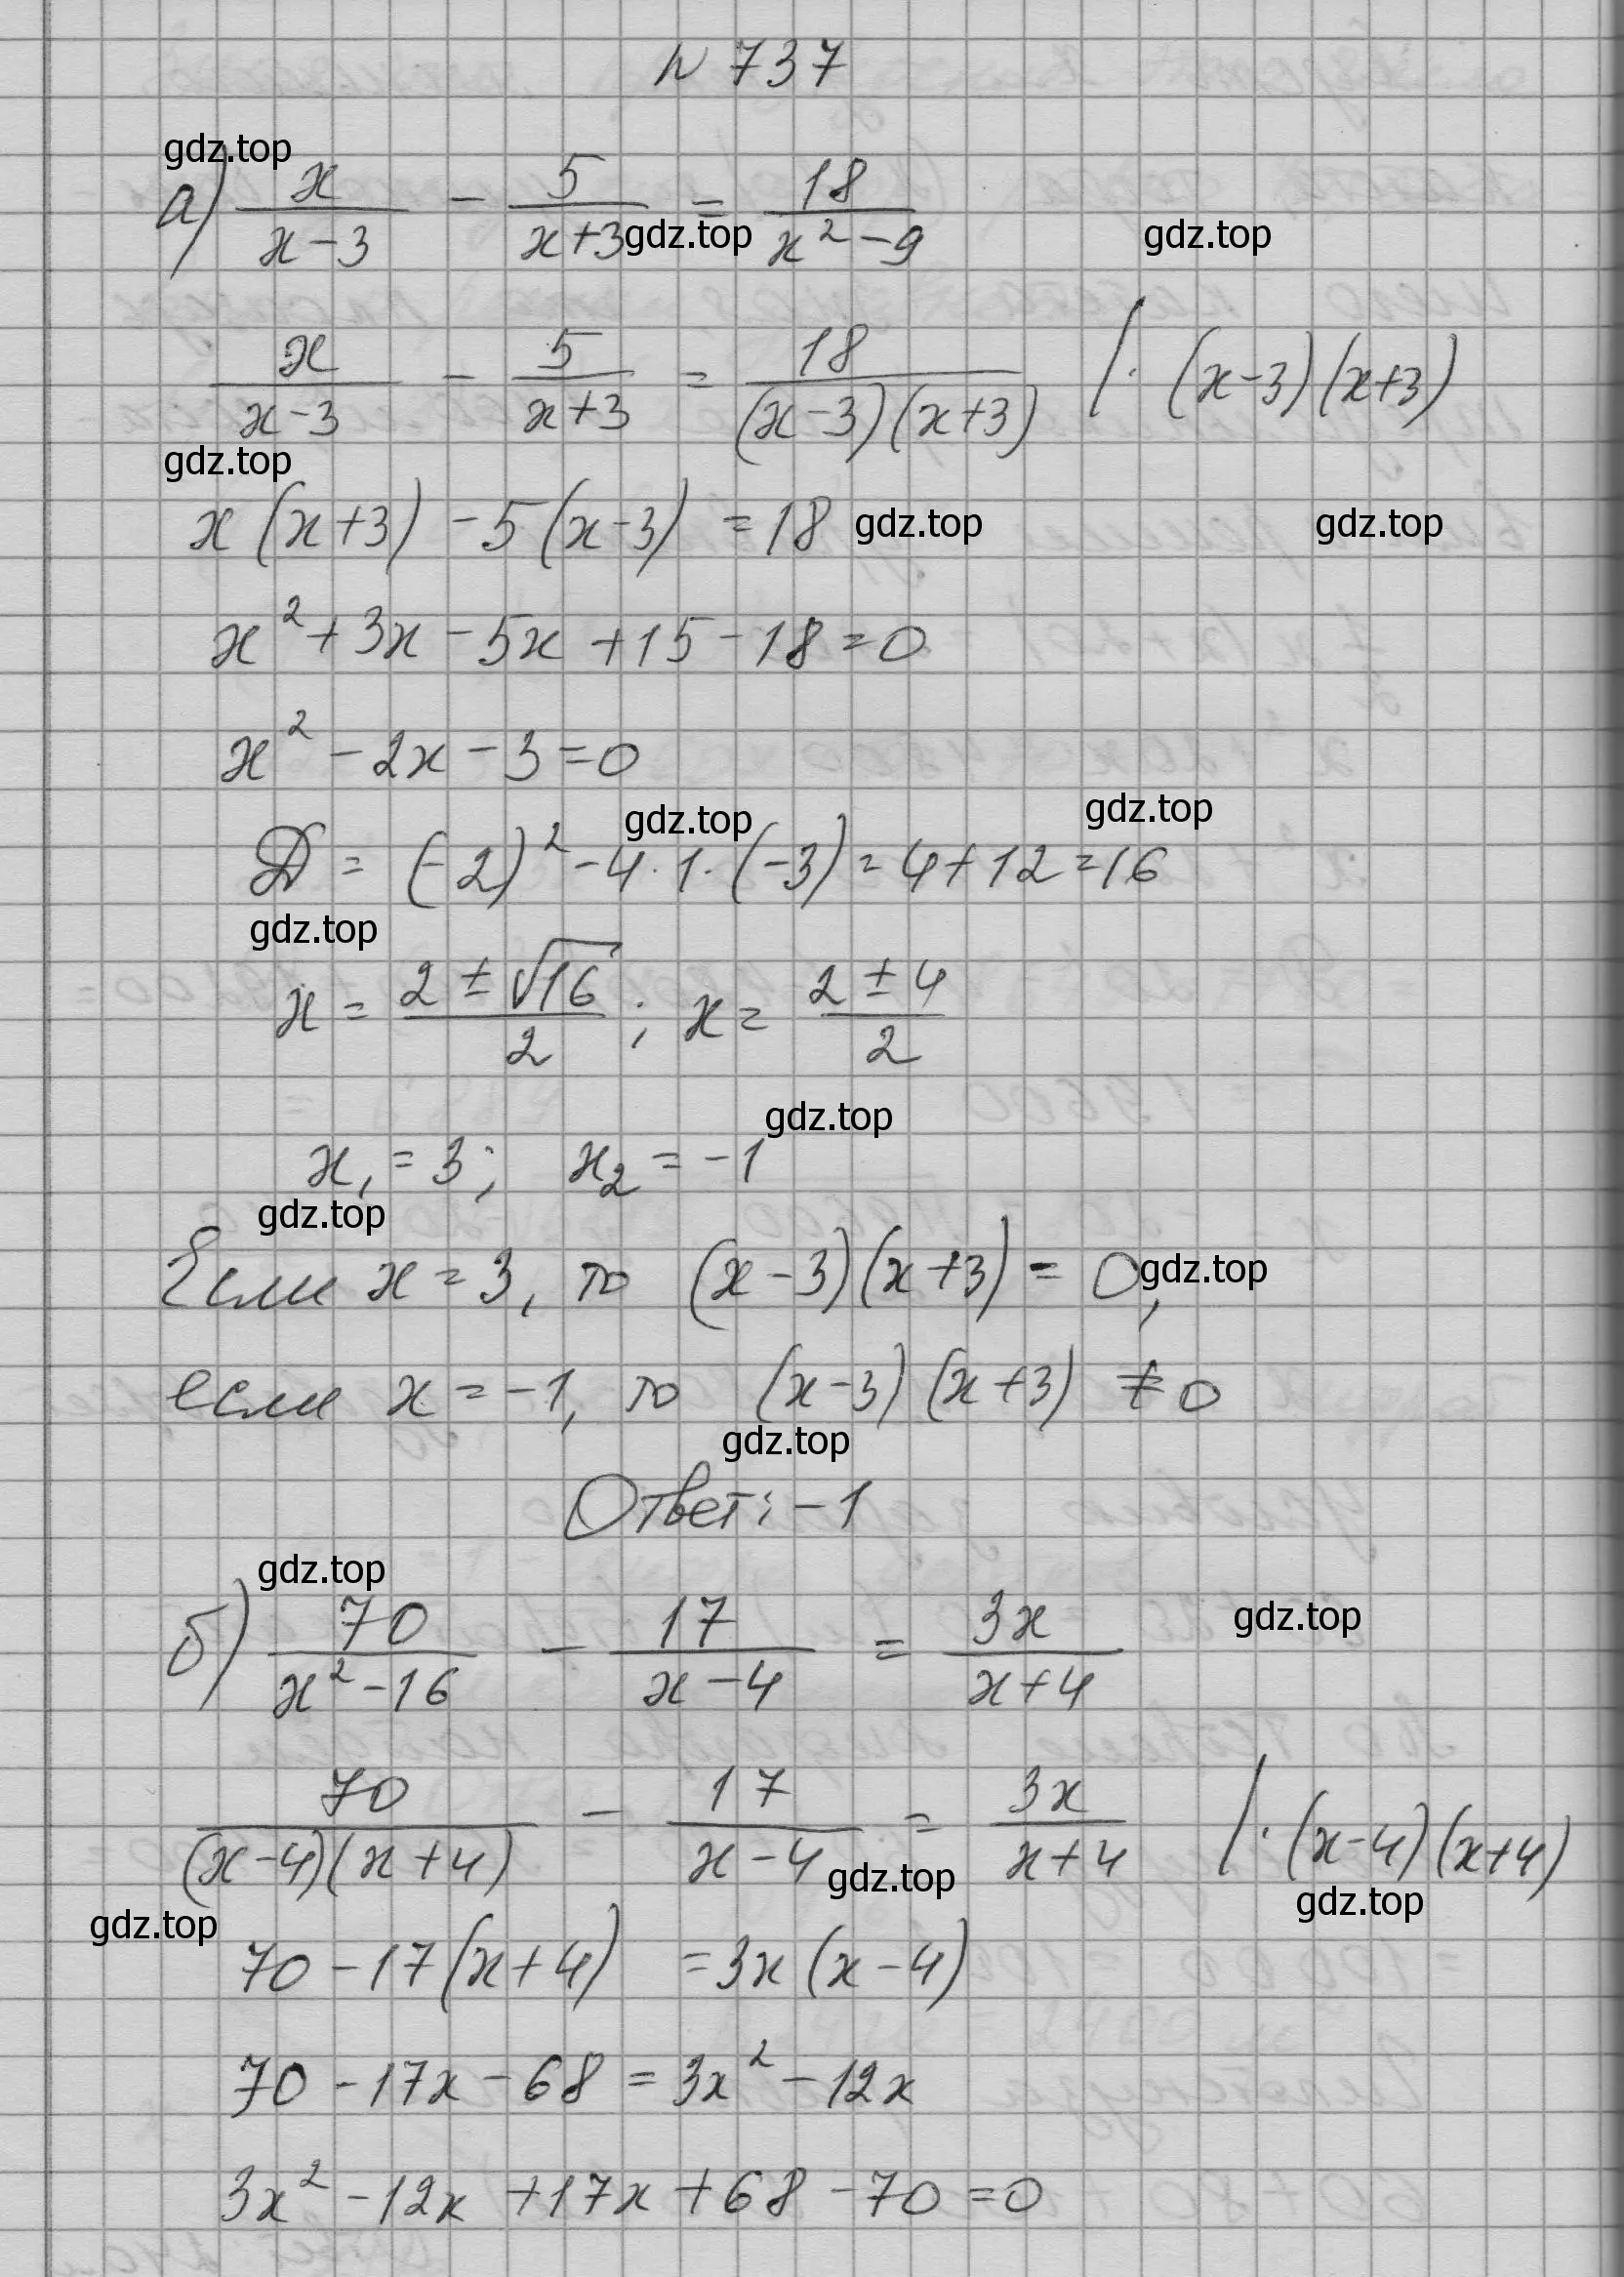 N 737
gdz.top
а) x/(x-3) - 5/(x+3) = 18/(x²-9)
gdz.top gdz.top
x/(x-3) - 5/(x+3) = 18/((x-3)(x+3)) | · (x-3)(x+3)
gdz.top
x(x+3) -5(x-3) =18 gdz.top gdz.top
x² + 3x - 5x + 15 - 18 = 0
x² - 2x - 3 = 0
gdz.top gdz.top
D = (-2)² - 4 · 1 · (-3) = 4 + 12 = 16
gdz.top
x = (2 ± √16)/2 ; x = (2 ± 4)/2
gdz.top
x₁ = 3; x₂ = -1
gdz.top
Если x = 3, то (x-3)(x+3) = 0, gdz.top
если x = -1, то (x-3)(x+3) ≠ 0
gdz.top
Ответ: -1
gdz.top
б) 70/(x²-16) - 17/(x-4) = 3x/(x+4) gdz.top
70/((x-4)(x+4)) - 17/(x-4) = 3x/(x+4) | · (x-4)(x+4)
gdz.top gdz.top
gdz.top
70 - 17(x+4) = 3x(x-4)
70 - 17x - 68 = 3x² - 12x
3x² - 12x + 17x + 68 - 70 = 0